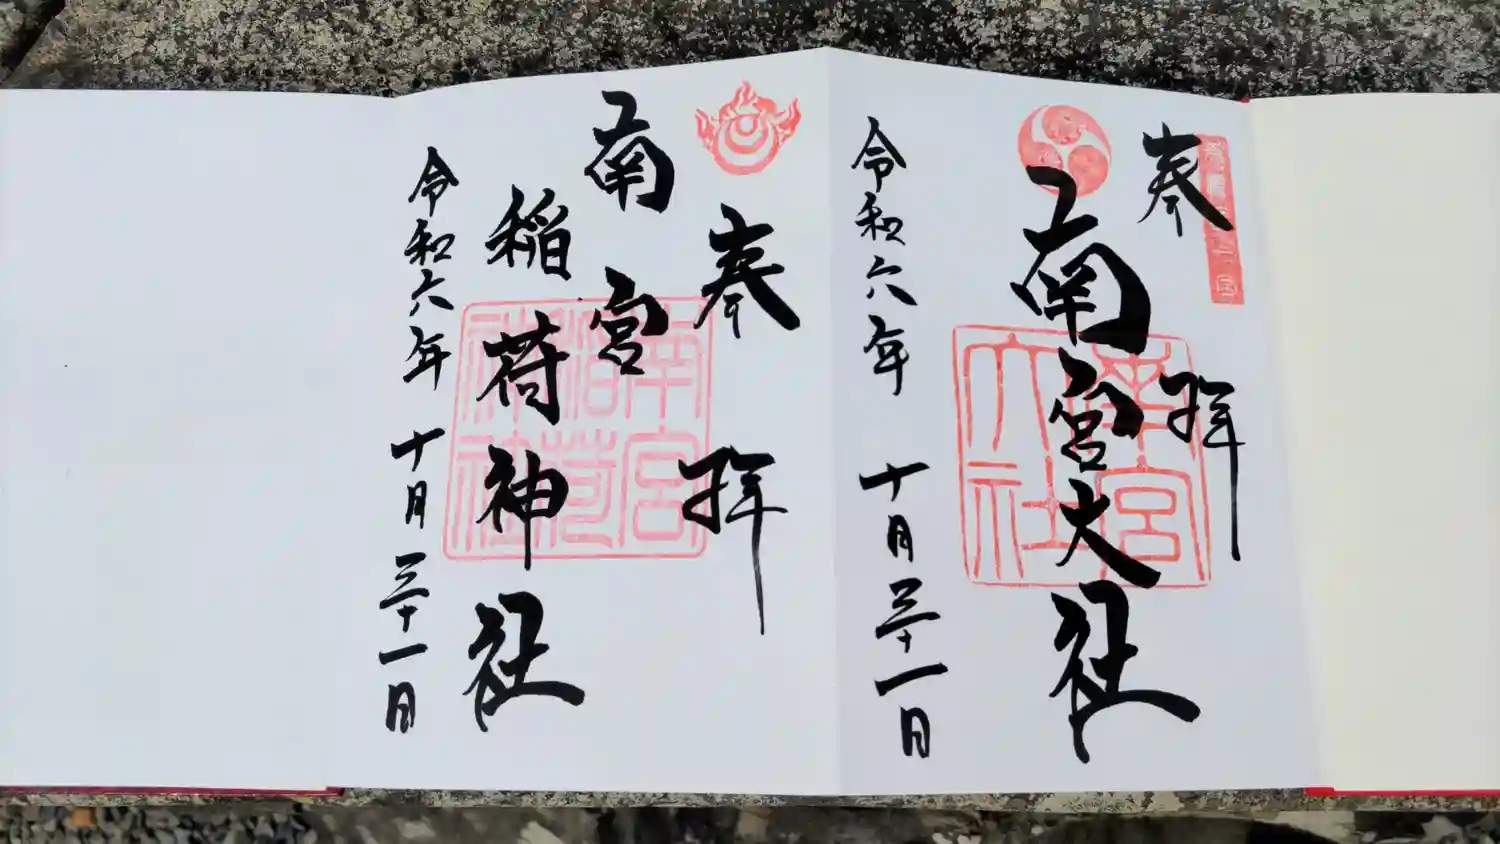 奉拝
南宮大社
南宮大社
令和六年 十月三十一日
奉拝
南宮
稲荷神社
南宮稲荷神社
令和六年 十月三十一日